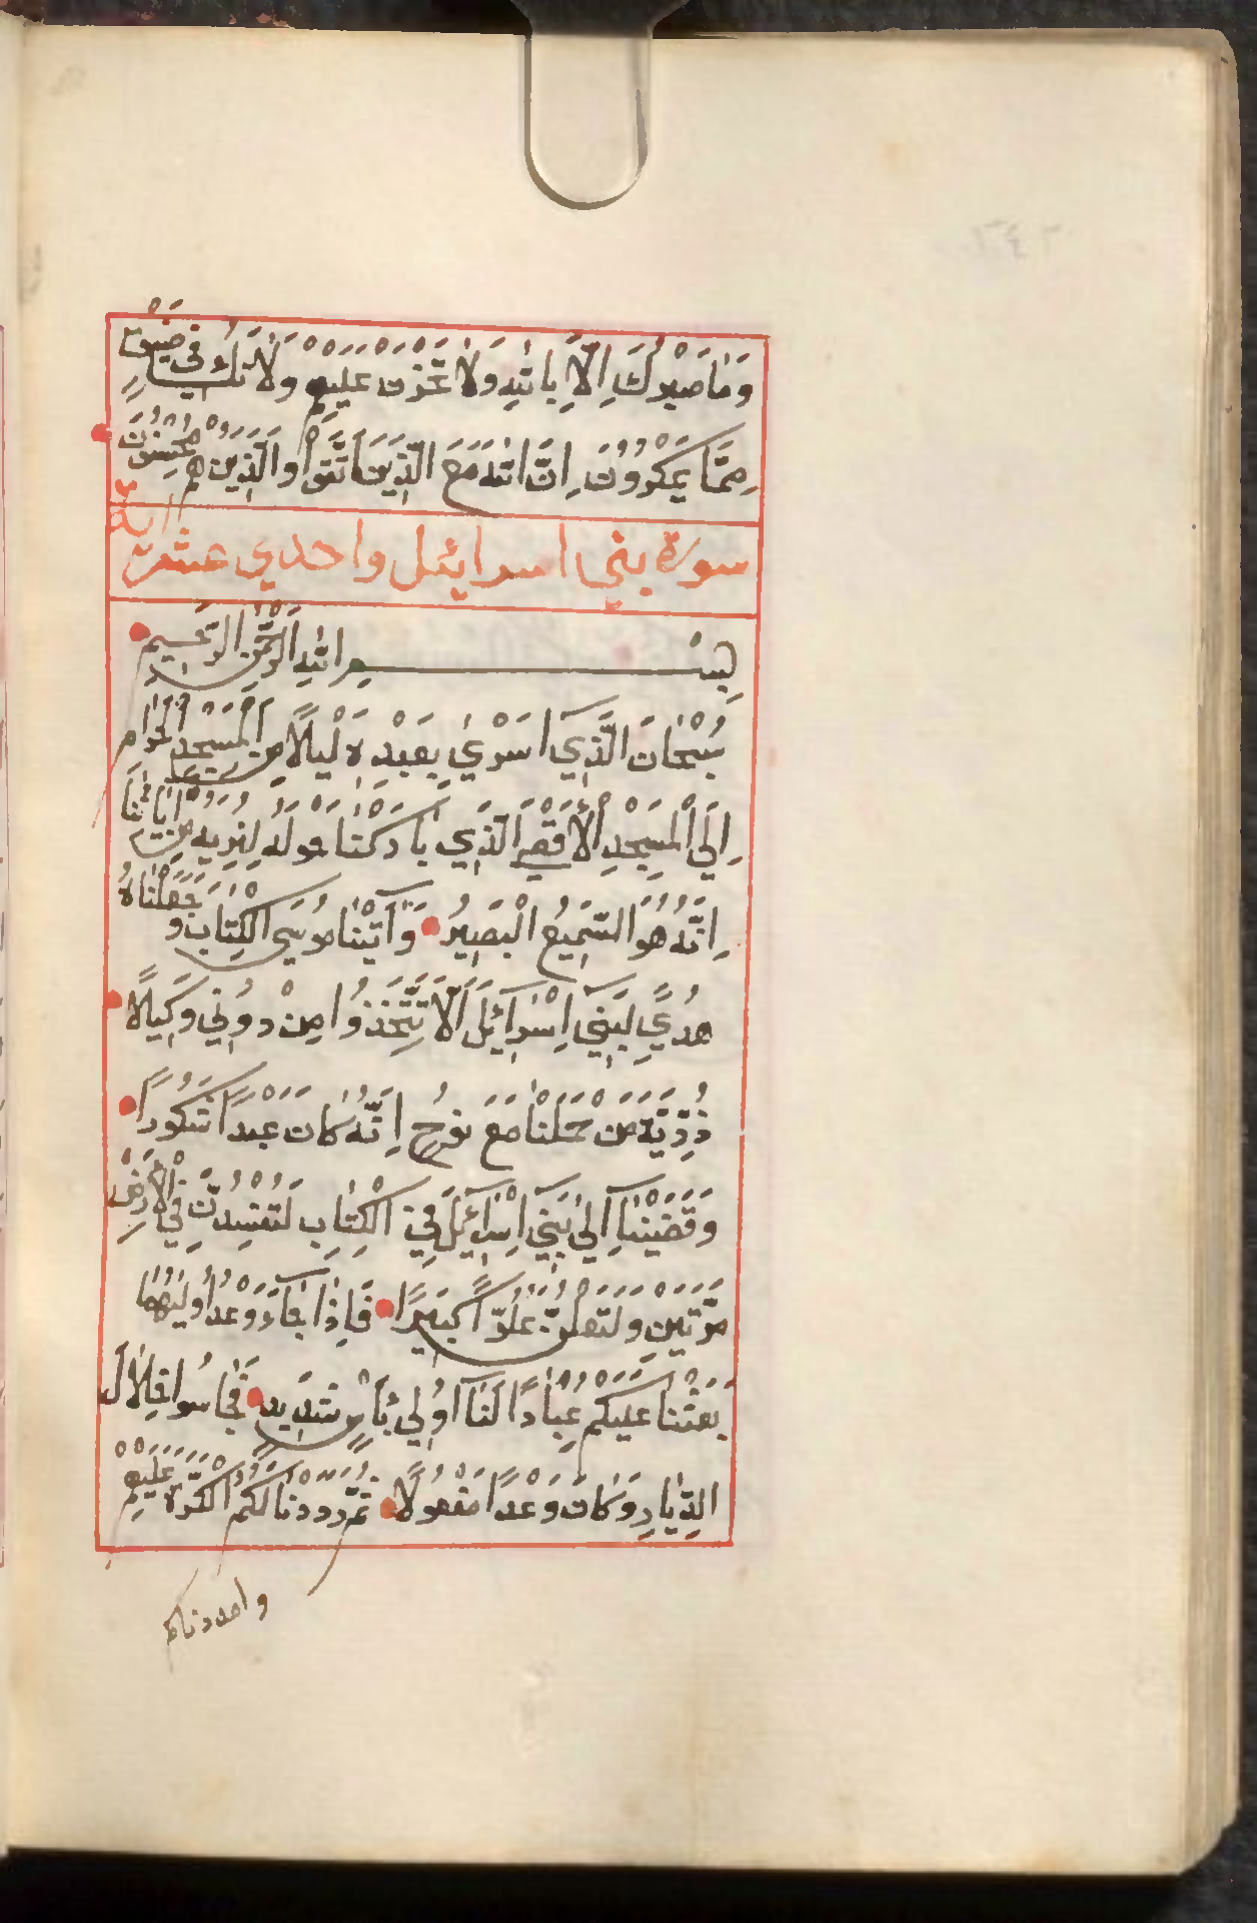 وَمَا صَبْرُكَ اِلَّا بِاللّٰهِ وَلَا تَحْزَنْ عَلَيْهِمْ وَلَا تَكُ فِي ضَيْقٍ
مِمَّا يَمْكُرُوُنَ اِنَّ اللّٰهَ مَعَ الَّذِينَ اتَّقَوْا وَالَّذِينَ هُمْ مُحْسِنُونَ
سورة بني اسرائل واحدي عشرت اية
بِسْمِ اللّٰهِ الرَّحْمٰنِ الرَّحِيمِ
سُبْحَانَ الَّذِي اَسْرٰي بِعَبْدِهِ لَيْلًا مِنَ الْمَسْجِدِ الْحَرَامِ
اِلَي الْمَسْجِدِ الْأَقْصَي الَّذِي بَارَكْنَا حَوْلَهُ لِنُرِيَهُ مِنْ اٰيَاتِنَا
اِنَّهُ هُوَ السَّمِيعُ الْبَصِيرُ وَآتَيْنَا مُوسَي الْكِتَابَ وَجَعَلْنَاهُ
هُدًي لِبَنِي اِسْرَآئِلَ اَلَّا تَتَّخِذُوا مِنْ دُوُنِي وَكِيلًا
ذُرِّيَّةَ مَنْ حَمَلْنَا مَعَ نُوحٍ اِنَّهُ كَانَ عَبْدًا شَكُورًا
وَقَضَيْنَآ اِلٰي بَنِي اِسْرَآئِلَ فِي الْكِتَابِ لَتُفْسِدُنَّ فِي الْأَرْضِ
مَرَّتَيْنِ وَلَتَعْلُنَّ عُلُوًّا كَبِيرًا فَاِذَا جَآءَ وَعْدُ اُولٰيهُمَا
بَعَثْنَا عَلَيْكُمْ عِبَادًا لَنَآ اُوْلِي بَأْسٍ شَدِيدٍ فَجَاسُوا خِلَالَ
الدِّيَارِ وَكَانَ وَعْدًا مَفْعُولًا ثُمَّ رَدَدْنَا لَكُمُ الْكَرَّةَ عَلَيْهِمْ
وامددناكم